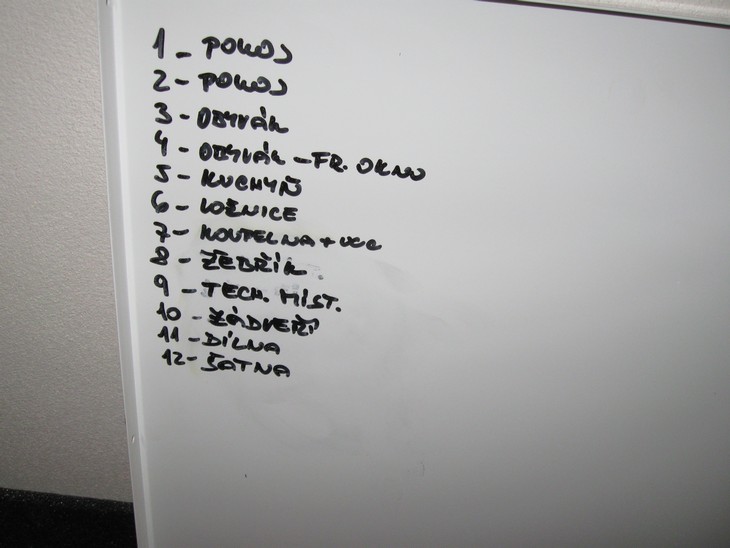 1 - POKOJ
2 - POKOJ
3 - OBÝVÁK
4 - OBÝVÁK - FR. OKNO
5 - KUCHYŇ
6 - LOŽNICE
7 - KOUPELNA + WC
8 - ŽEBŘÍK
9 - TECH. MÍST.
10 - ZÁDVEŘÍ
11 - DÍLNA
12 - ŠATNA